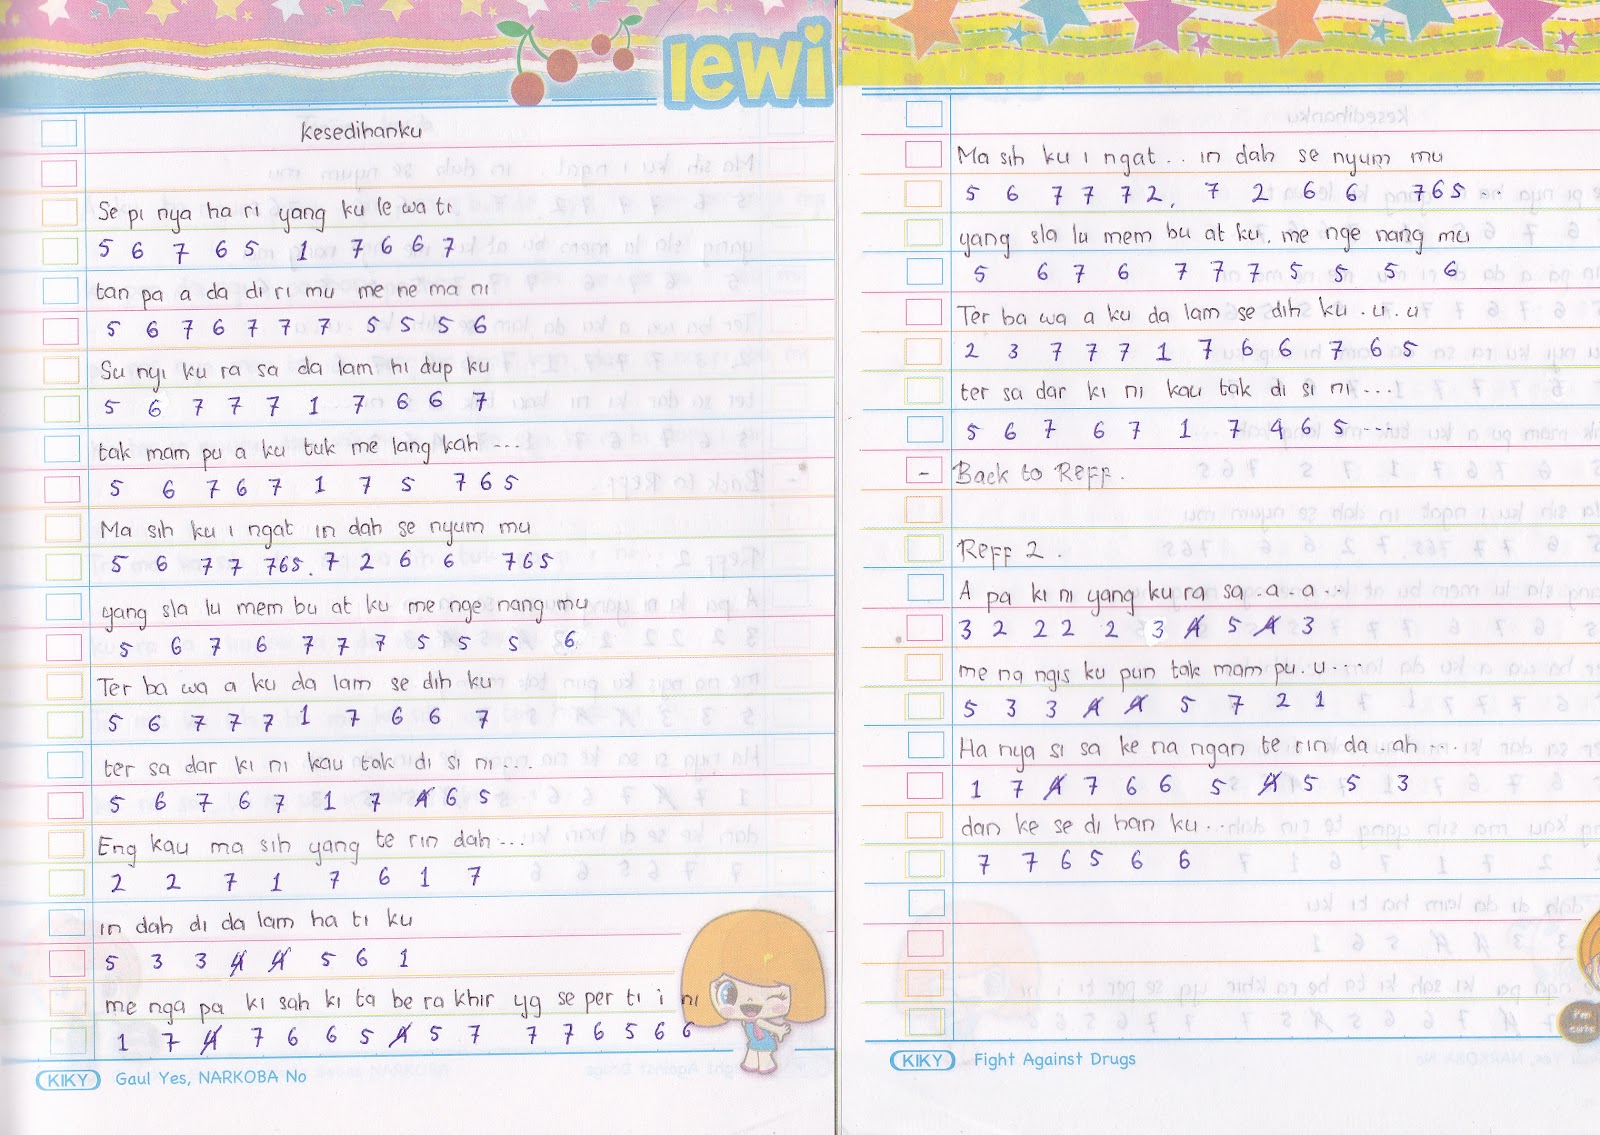 lewi
Kesedihanku
Se pi nya ha ri yang ku le wa ti
5 6 7 6 5 1 7 6 6 7
tan pa a da di ri mu me ne ma ni
5 6 7 6 7 7 7 5 5 5 6
Su nyi ku ra sa da lam hi dup ku
5 6 7 7 7 1 7 6 6 7
tak mam pu a ku tuk me lang kah ...
5 6 7 6 7 1 7 5 7 6 5
Ma sih ku i ngat in dah se nyum mu
5 6 7 7 765. 7 2 6 6 765
yang sla lu mem bu at ku me nge nang mu
5 6 7 6 7 7 7 5 5 5 6
Ter ba wa a ku da lam se dih ku
5 6 7 7 7 1 7 6 6 7
ter sa dar ki ni kau tak di si ni ...
5 6 7 6 7 1 7 4 6 5
Eng kau ma sih yang te rin dah ...
2 2 7 1 7 6 1 7
in dah di da lam ha ti ku
5 3 3 4 4 5 6 1
me nga pa ki sah ki ta be ra khir yg se per ti i ni
1 7 4 7 6 6 5 4 5 7 7 7 6 5 6 6
KIKY Gaul Yes, NARKOBA No
Ma sih ku i ngat .. in dah se nyum mu
5 6 7 7 7 2, 7 2 6 6 765 ...
yang sla lu mem bu at ku. me nge nang mu
5 6 7 6 7 7 7 5 5 5 6
Ter ba wa a ku da lam se dih ku .u. u
2 3 7 7 7 1 7 6 6 7 6 5
ter sa dar ki ni kau tak di si ni ...
5 6 7 6 7 1 7 4 6 5 ...
- Back to Reff.
Reff 2.
A pa ki ni yang ku ra sa .a .a ...
3 2 2 2 2 3 4 5 4 3
me na ngis ku pun tak mam pu. u ...
5 3 3 4 4 5 7 2 1
Ha nya si sa ke na ngan te rin da .ah ...
1 7 4 7 6 6 5 4 5 5 3
dan ke se di han ku ...
7 7 6 5 6 6
I'm cute
KIKY Fight Against Drugs